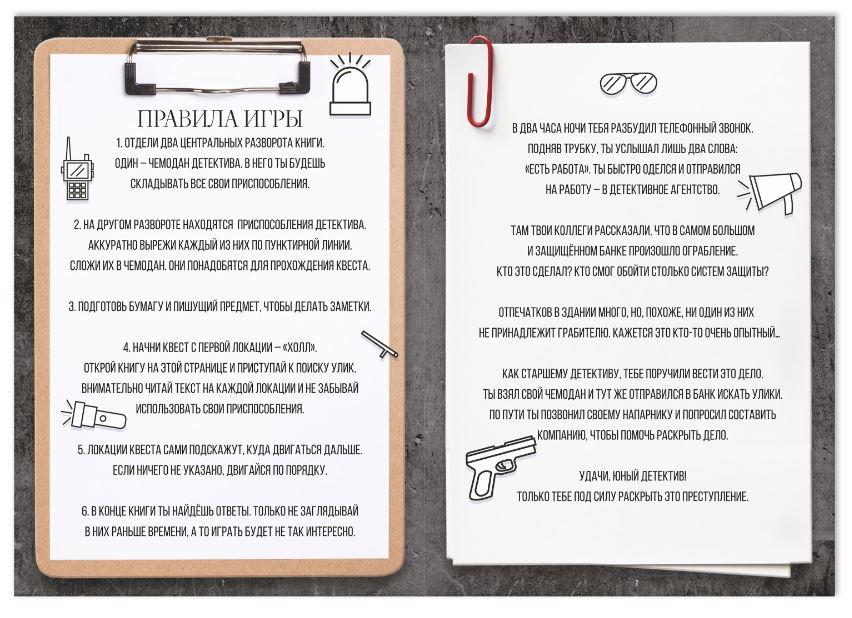 ПРАВИЛА ИГРЫ
1. ОТДЕЛИ ДВА ЦЕНТРАЛЬНЫХ РАЗВОРОТА КНИГИ.
ОДИН – ЧЕМОДАН ДЕТЕКТИВА. В НЕГО ТЫ БУДЕШЬ
СКЛАДЫВАТЬ ВСЕ СВОИ ПРИСПОСОБЛЕНИЯ.
2. НА ДРУГОМ РАЗВОРОТЕ НАХОДЯТСЯ ПРИСПОСОБЛЕНИЯ ДЕТЕКТИВА.
АККУРАТНО ВЫРЕЖИ КАЖДЫЙ ИЗ НИХ ПО ПУНКТИРНОЙ ЛИНИИ.
СЛОЖИ ИХ В ЧЕМОДАН. ОНИ ПОНАДОБЯТСЯ ДЛЯ ПРОХОЖДЕНИЯ КВЕСТА.
3. ПОДГОТОВЬ БУМАГУ И ПИШУЩИЙ ПРЕДМЕТ, ЧТОБЫ ДЕЛАТЬ ЗАМЕТКИ.
4. НАЧНИ КВЕСТ С ПЕРВОЙ ЛОКАЦИИ – «ХОЛЛ».
ОТКРОЙ КНИГУ НА ЭТОЙ СТРАНИЦЕ И ПРИСТУПАЙ К ПОИСКУ УЛИК.
ВНИМАТЕЛЬНО ЧИТАЙ ТЕКСТ НА КАЖДОЙ ЛОКАЦИИ И НЕ ЗАБЫВАЙ
ИСПОЛЬЗОВАТЬ СВОИ ПРИСПОСОБЛЕНИЯ.
5. ЛОКАЦИИ КВЕСТА САМИ ПОДСКАЖУТ, КУДА ДВИГАТЬСЯ ДАЛЬШЕ.
ЕСЛИ НИЧЕГО НЕ УКАЗАНО, ДВИГАЙСЯ ПО ПОРЯДКУ.
6. В КОНЦЕ КНИГИ ТЫ НАЙДЁШЬ ОТВЕТЫ. ТОЛЬКО НЕ ЗАГЛЯДЫВАЙ
В НИХ РАНЬШЕ ВРЕМЕНИ, А ТО ИГРАТЬ БУДЕТ НЕ ТАК ИНТЕРЕСНО.
В ДВА ЧАСА НОЧИ ТЕБЯ РАЗБУДИЛ ТЕЛЕФОННЫЙ ЗВОНОК.
ПОДНЯВ ТРУБКУ, ТЫ УСЛЫШАЛ ЛИШЬ ДВА СЛОВА:
«ЕСТЬ РАБОТА». ТЫ БЫСТРО ОДЕЛСЯ И ОТПРАВИЛСЯ
НА РАБОТУ – В ДЕТЕКТИВНОЕ АГЕНТСТВО.
ТАМ ТВОИ КОЛЛЕГИ РАССКАЗАЛИ, ЧТО В САМОМ БОЛЬШОМ
И ЗАЩИЩЁННОМ БАНКЕ ПРОИЗОШЛО ОГРАБЛЕНИЕ.
КТО ЭТО СДЕЛАЛ? КТО СМОГ ОБОЙТИ СТОЛЬКО СИСТЕМ ЗАЩИТЫ?
ОТПЕЧАТКОВ В ЗДАНИИ МНОГО, НО, ПОХОЖЕ, НИ ОДИН ИЗ НИХ
НЕ ПРИНАДЛЕЖИТ ГРАБИТЕЛЮ. КАЖЕТСЯ ЭТО КТО-ТО ОЧЕНЬ ОПЫТНЫЙ...
КАК СТАРШЕМУ ДЕТЕКТИВУ, ТЕБЕ ПОРУЧИЛИ ВЕСТИ ЭТО ДЕЛО.
ТЫ ВЗЯЛ СВОЙ ЧЕМОДАН И ТУТ ЖЕ ОТПРАВИЛСЯ В БАНК ИСКАТЬ УЛИКИ.
ПО ПУТИ ТЫ ПОЗВОНИЛ СВОЕМУ НАПАРНИКУ И ПОПРОСИЛ СОСТАВИТЬ
КОМПАНИЮ, ЧТОБЫ ПОМОЧЬ РАСКРЫТЬ ДЕЛО.
УДАЧИ, ЮНЫЙ ДЕТЕКТИВ!
ТОЛЬКО ТЕБЕ ПОД СИЛУ РАСКРЫТЬ ЭТО ПРЕСТУПЛЕНИЕ.
2